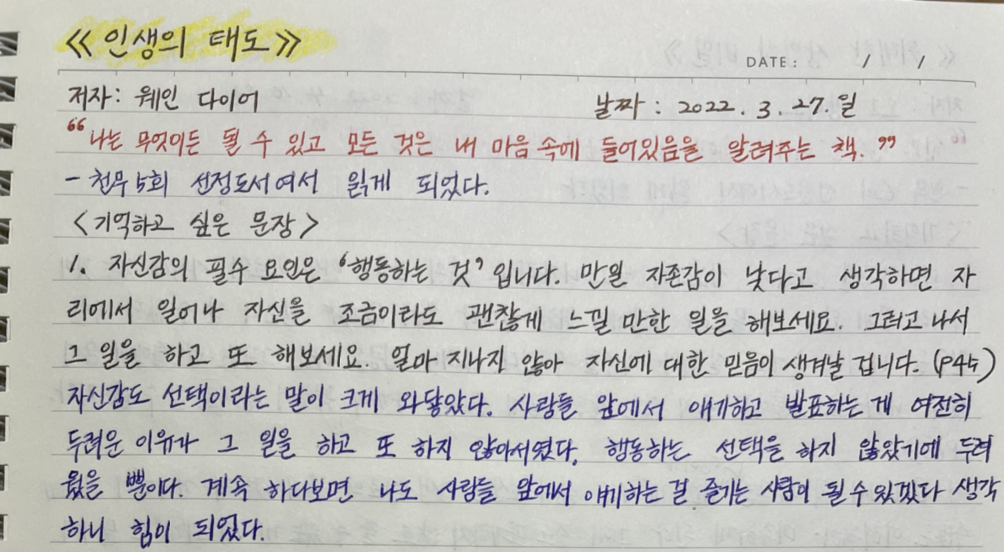 ≪인생의 태도≫
DATE : / /
저자: 웨인 다이어 날짜 : 2022. 3. 27. 일
“나는 무엇이든 될 수 있고 모든 것은 내 마음 속에 들어있음을 알려주는 책.”
- 천무 5회 선정도서여서 읽게 되었다.
<기억하고 싶은 문장>
1. 자신감의 필수 요인은 ‘행동하는 것’입니다. 만일 자존감이 낮다고 생각하면 자
리에서 일어나 자신을 조금이라도 괜찮게 느낄 만한 일을 해보세요. 그러고 나서
그 일을 하고 또 해보세요. 얼마 지나지 않아 자신에 대한 믿음이 생겨날 겁니다. (P45)
자신감도 선택이라는 말이 크게 와닿았다. 사람들 앞에서 얘기하고 발표하는 게 여전히
두려운 이유가 그 일을 하고 또 하지 않아서였다. 행동하는 선택을 하지 않았기에 두려
웠을 뿐이다. 계속 하다보면 나도 사람들 앞에서 얘기하는 걸 즐기는 사람이 될 수 있겠다 생각
하니 힘이 되었다.